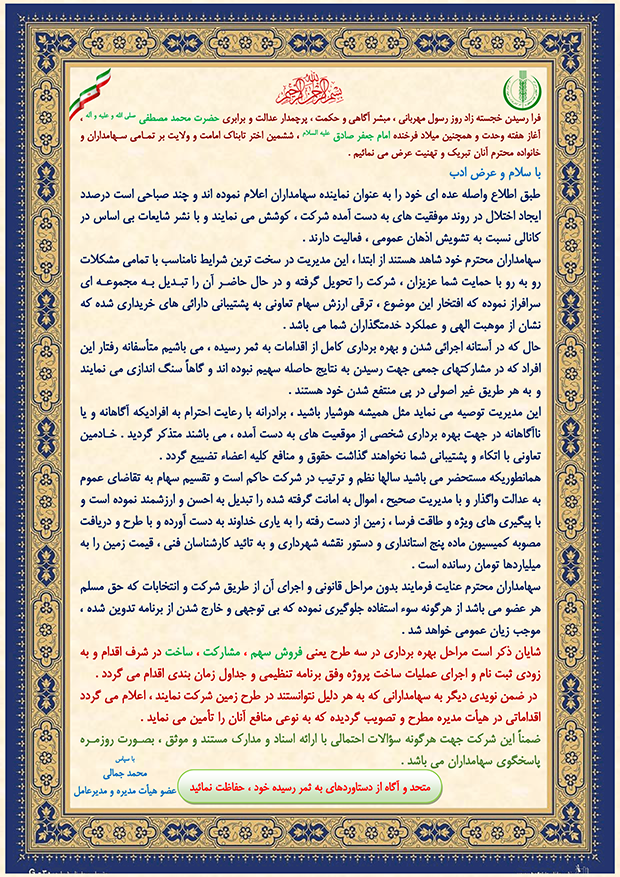 بسم الله الرحمن الرحیم
فرا رسیدن خجسته زاد روز رسول مهربانی ، مبشر آگاهی و حکمت ، پرچمدار عدالت و برابری حضرت محمد مصطفی صلی الله و علیه و آله ،
آغاز هفته وحدت و همچنین میلاد فرخنده امام جعفر صادق علیه السلام ، ششمین اختر تابناک امامت و ولایت بر تمـامی سـهامداران و
خانواده محترم آنان تبریک و تهنیت عرض می نمائیم .
با سلام و عرض ادب
طبق اطلاع واصله عده ای خود را به عنوان نماینده سهامداران اعلام نموده اند و چند صباحی است درصدد
ایجاد اختلال در روند موفقیت های به دست آمده شرکت ، کوشش می نمایند و با نشر شایعات بی اساس در
کانالی نسبت به تشویش اذهان عمومی ، فعالیت دارند .
سهامداران محترم خود شاهد هستند از ابتدا ، این مدیریت در سخت ترین شرایط نامناسب با تمامی مشکلات
رو به رو با حمایت شما عزیزان ، شرکت را تحویل گرفته و در حال حاضـر آن را تبـدیل بـه مجموعـه ای
سرافراز نموده که افتخار این موضوع ، ترقی ارزش سهام تعاونی به پشتیبانی دارائی های خریداری شده که
نشان از موهبت الهی و عملکرد خدمتگذاران شما می باشد .
حال که در آستانه اجرائی شدن و بهره برداری کامل از اقدامات به ثمر رسیده ، می باشیم متأسفانه رفتار این
افراد که در مشارکتهای جمعی جهت رسیدن به نتایج حاصله سهیم نبوده اند و گاهاً سنگ اندازی می نمایند
و به هر طریق غیر اصولی در پی منتفع شدن خود هستند .
این مدیریت توصیه می نماید مثل همیشه هوشیار باشید ، برادرانه با رعایت احترام به افرادیکه آگاهانه و یا
ناآگاهانه در جهت بهره برداری شخصی از موقعیت های به دست آمده ، می باشند متذکر گردید . خـادمین
تعاونی با اتکاء و پشتیبانی شما نخواهند گذاشت حقوق و منافع کلیه اعضاء تضییع گردد .
همانطوریکه مستحضر می باشید سالها نظم و ترتیب در شرکت حاکم است و تقسیم سهام به تقاضای عموم
به عدالت واگذار و با مدیریت صحیح ، اموال به امانت گرفته شده را تبدیل به احسن و ارزشمند نموده است و
با پیگیری های ویژه و طاقت فرسا ، زمین از دست رفته را به یاری خداوند به دست آورده و با طرح و دریافت
مصوبه کمیسیون ماده پنج استانداری و دستور نقشه شهرداری و به تائید کارشناسان فنی ، قیمت زمین را به
میلیاردها تومان رسانده است .
سهامداران محترم عنایت فرمایند بدون مراحل قانونی و اجرای آن از طریق شرکت و انتخابات که حق مسلم
هر عضو می باشد از هرگونه سوء استفاده جلوگیری نموده که بی توجهی و خارج شدن از برنامه تدوین شده ،
موجب زیان عمومی خواهد شد .
شایان ذکر است مراحل بهره برداری در سه طرح یعنی فروش سهم ، مشارکت ، ساخت در شرف اقدام و به
زودی ثبت نام و اجرای عملیات ساخت پروژه وفق برنامه تنظیمی و جداول زمان بندی اقدام می گردد .
در ضمن نویدی دیگر به سهامدارانی که به هر دلیل نتوانستند در طرح زمین شرکت نمایند ، اعلام می گردد
اقداماتی در هیأت مدیره مطرح و تصویب گردیده که به نوعی منافع آنان را تأمین می نماید .
ضمناً این شرکت جهت هرگونه سؤالات احتمالی با ارائه اسناد و مدارک مستند و موثق ، بصـورت روزمـره
پاسخگوی سهامداران می باشد .
با سپاس
محمد جمالی
عضو هیأت مدیره و مدیرعامل
متحد و آگاه از دستاوردهای به ثمر رسیده خود ، حفاظت نمائید